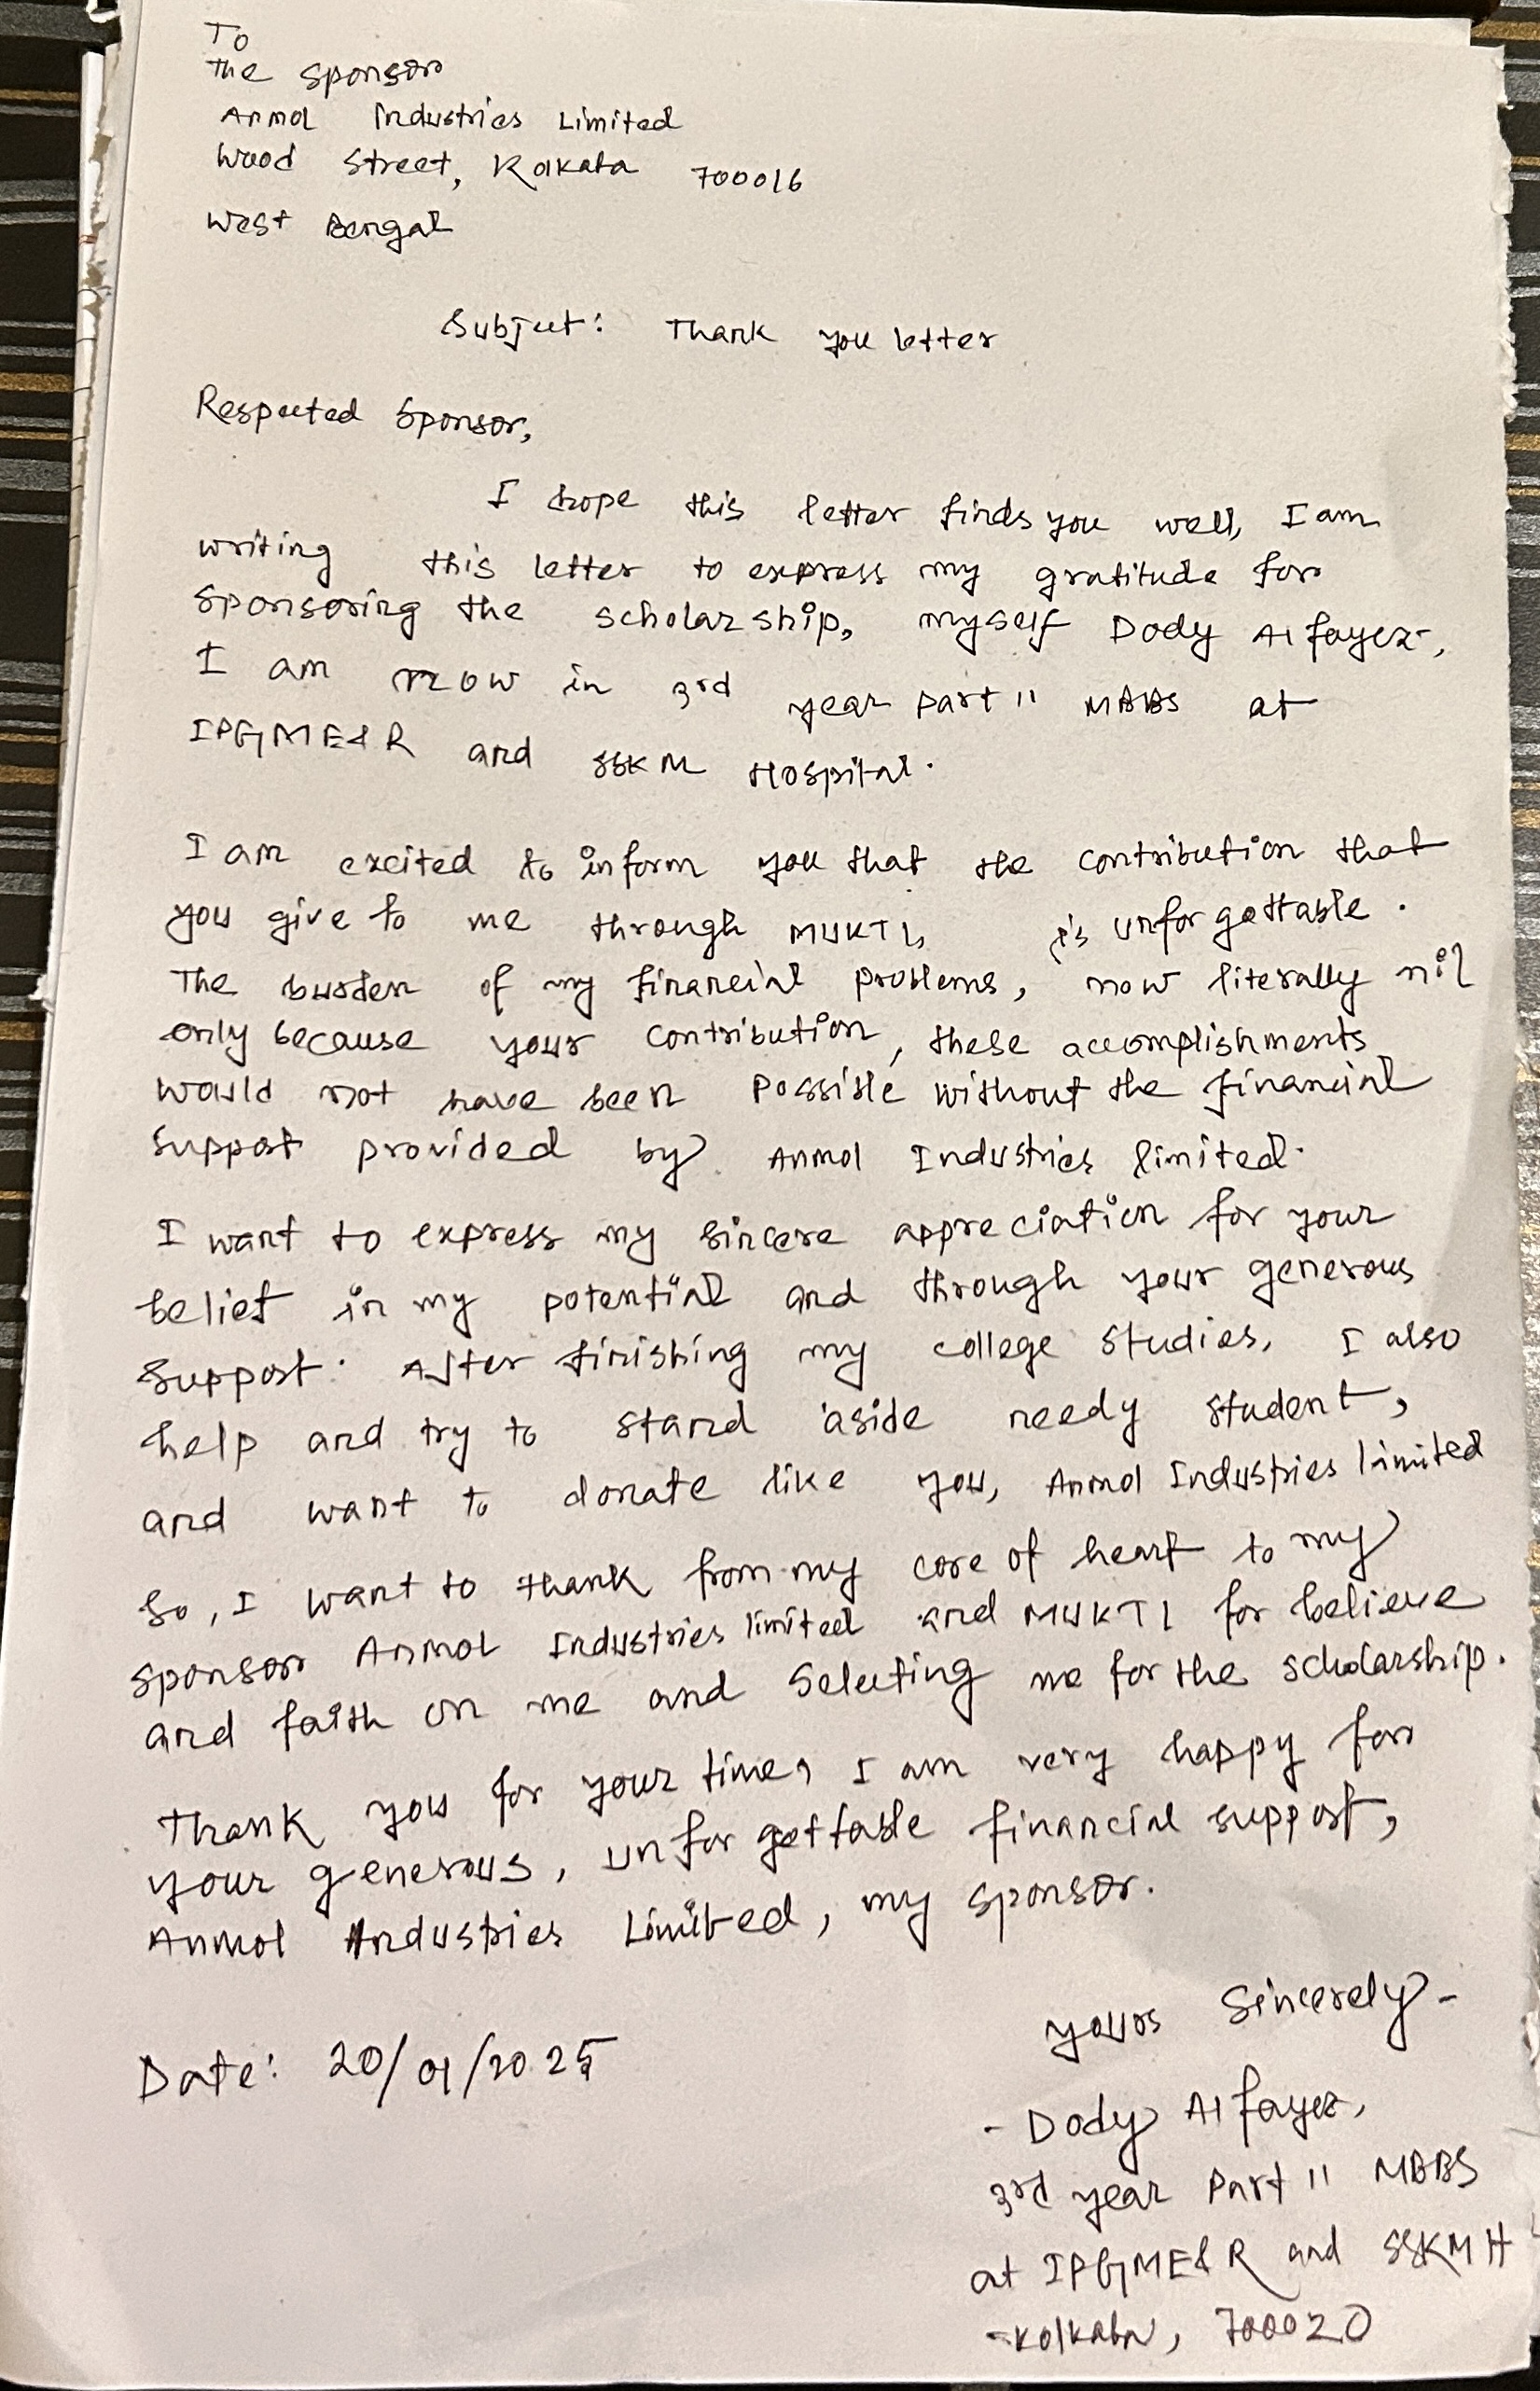 To
The Sponsor
Anmol Industries Limited
Wood Street, Kolkata 700016
West Bengal
Subject: Thank you letter
Respected Sponsor,
I hope this letter finds you well, I am
writing this letter to express my gratitude for
sponsoring the scholarship, myself Dody Al fayez,
I am now in 3rd year part II MBBS at
IPGME&R and SSKM Hospital.
I am excited to inform you that the contribution that
you give to me through MUKTI, is unforgettable.
The burden of my financial problems, now literally nil
only because your contribution, these accomplishments
would not have been possible without the financial
support provided by Anmol Industries limited.
I want to express my sincere appreciation for your
belief in my potential and through your generous
support. After finishing my college studies, I also
help and try to stand aside needy student,
and want to donate like you, Anmol Industries limited
So, I want to thank from my core of heart to my
sponsor Anmol Industries limited and MUKTI for believe
and faith on me and selecting me for the scholarship.
Thank you for your time, I am very happy for
your generous, unforgettable financial support,
Anmol Industries Limited, my sponsor.
Yours Sincerely-
Date: 20/01/2025
- Dody Al fayez,
3rd year Part II MBBS
at IPGME&R and SSKMH
-Kolkata, 700020